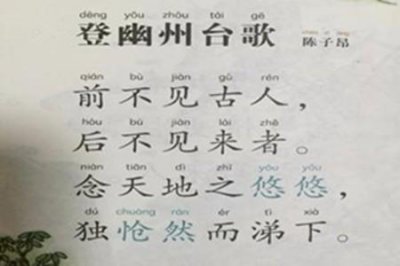 dēng yōu zhōu tái gē
登幽州台歌 陈子昂
qián bù jiàn gǔ rén
前不见古人，
hòu bù jiàn lái zhě
后不见来者。
niàn tiān dì zhī yōu yōu
念天地之悠悠，
dú chuàng rán ér tì xià
独怆然而涕下。